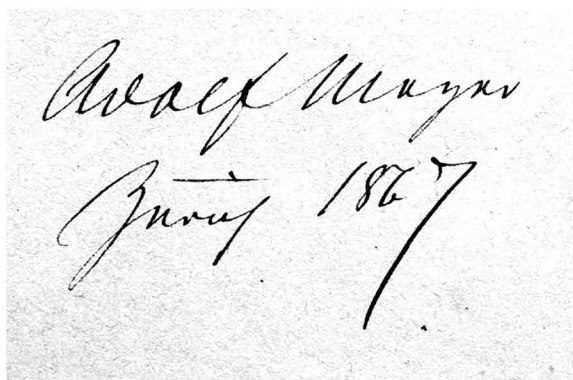 Adolf Meyer
Zürich 1867